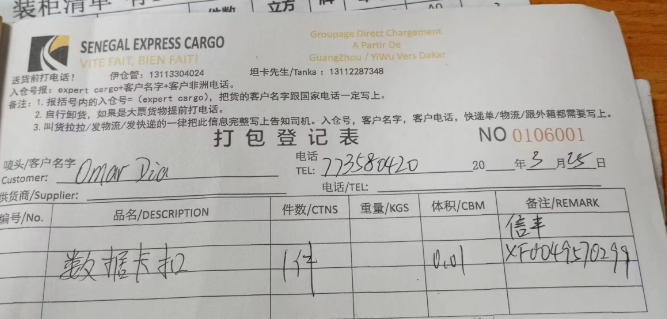 装柜清单
件数 立方
SENEGAL EXPRESS CARGO
VITE FAIT, BIEN FAIT!
Groupage Direct Chargement
A Partir De
GuangZhou / YiWu Vers Dakar
送货前打电话! 伊仓管: 13113304024 坦卡先生/Tanka : 13112287348
入仓号报: expert cargo+客户名字+客户非洲电话。
备注: 1. 报括号内的入仓号=(expert cargo), 把货的客户名字跟国家电话一定写上。
2. 自行卸货, 如果是大票货物提前打电话。
3. 叫货拉拉/发物流/发快递的一律把此信息完整写上告知司机。入仓号, 客户名字, 客户电话, 快递单/物流/跟外箱都需要写上。
打包登记表
NO 0106001
唛头/客户名字 电话
Customer: Omar Dia TEL: 773580420 20 年 3 月 25 日
供货商/Supplier: 电话/TEL:
编号/No. 品名/DESCRIPTION 件数/CTNS 重量/KGS 体积/CBM 备注/REMARK
信丰
数据卡扣 1件 0.01 XF0049570299